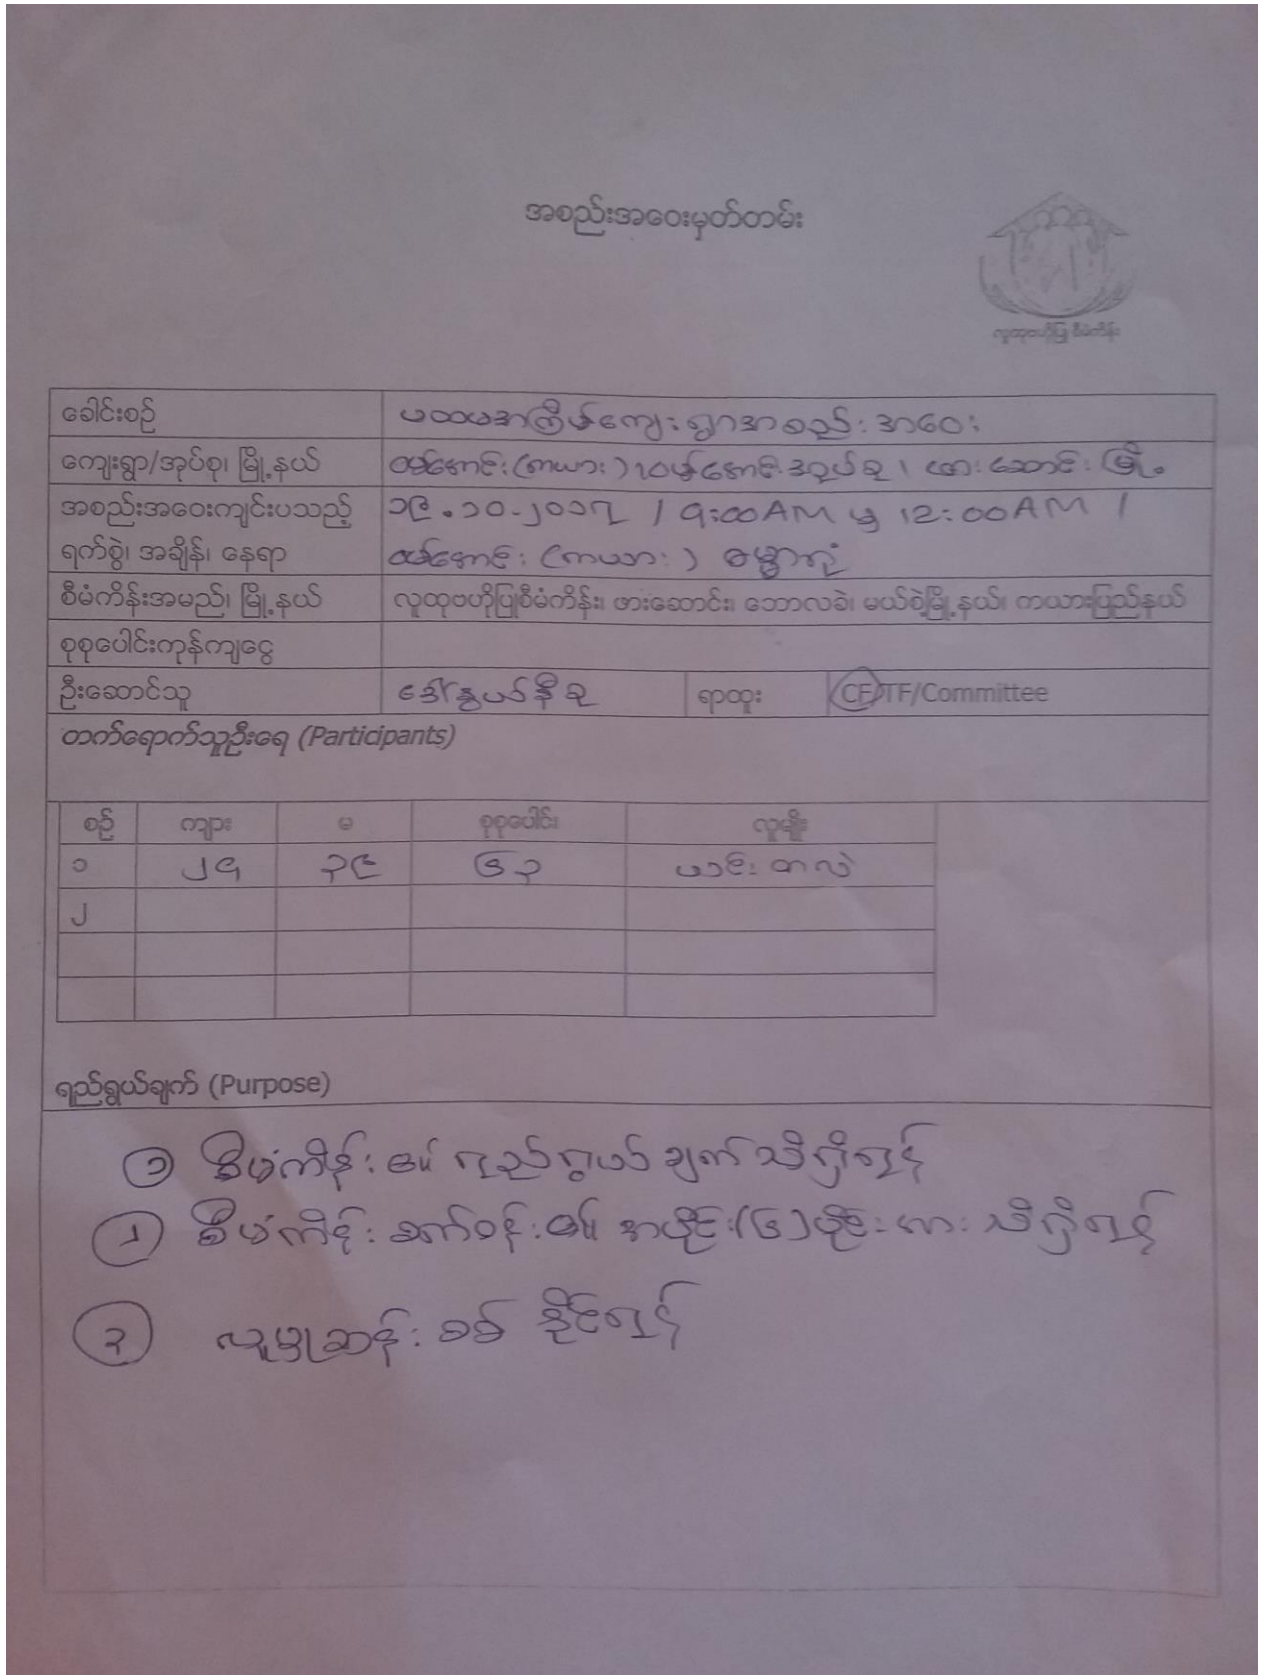 အစည်းအဝေးမှတ်တမ်း
လူထုဗဟိုပြု စီမံကိန်း
ခေါင်းစဉ် ပထမအကြိမ်ကျေးရွာအစည်းအဝေး
ကျေးရွာ/အုပ်စု၊ မြို့နယ် ဝမ်အောင်း(ကယား)၊ဝမ်အောင်းအုပ်စု၊ ဖားဆောင်းမြို့
အစည်းအဝေးကျင်းပသည့် ၁၉.၁၀.၂၀၁၇ / 9:00AM မှ 12:00AM /
ရက်စွဲ၊ အချိန်၊ နေရာ ဝမ်အောင်း (ကယား) ဓမ္မာရုံ
စီမံကိန်းအမည်၊ မြို့နယ် လူထုဗဟိုပြုစီမံကိန်း၊ ဖားဆောင်း၊ ဘောလခဲ၊ မယ်စဲ့မြို့နယ်၊ ကယားပြည်နယ်
စုစုပေါင်းကုန်ကျငွေ
ဦးဆောင်သူ ဒေါ်နွယ်နီစု ရာထူး CF/TF/Committee
တက်ရောက်သူဦးရေ (Participants)
စဉ် ကျား မ စုစုပေါင်း လူမျိုး
၁ ၂၄ ၃၉ ၆၃ ယင်းတလဲ
၂
ရည်ရွယ်ချက် (Purpose)
၁ စီမံကိန်း၏ ရည်ရွယ်ချက်သိရှိရန်
၂ စီမံကိန်း စက်ဝန်း၏ အပိုင်း(၆)ပိုင်းအား သိရှိရန်
၃ လူမှုဆန်းစစ် နိုင်ရန်